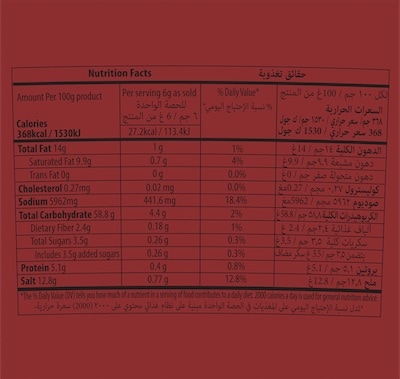 Nutrition Facts حقائق تغذوية
Amount Per 100g product
Calories
368kcal / 1530kJ
Per serving 6g as sold
للحصة الواحدة
٦ جم / 6 غ من المنتج
27.2kcal / 113.4kJ
% Daily Value*
% نسبة الإحتياج اليومي*
لكل ١٠٠ جم / 100غ من المنتج
السعرات الحرارية
٣٦٨ سعر حراري / ١٥٣٠ ك جول
368 سعر حراري / 1530 ك جول
Total Fat 14g 1 g 1% الدهون الكلية ١٤ جم / 14غ
Saturated Fat 9.9g 0.7 g 4% دهون مشبعة ٩,٩ جم / 9.9غ
Trans Fat 0g 0 g 0% دهون متحولة صفر جم / 0غ
Cholesterol 0.27mg 0.02 mg 0.0% كوليسترول ٠,٢٧ مجم / 0.27مغ
Sodium 5962mg 441.6 mg 18.4% صوديوم ٥٩٦٢ مجم / 5962مغ
Total Carbohydrate 58.8 g 4.4 g 2% الكربوهيدرات الكلية ٥٨,٨ جم / 58.8غ
Dietary Fiber 2.4g 0.18 g 1% ألياف غذائية ٢,٤ جم / 2.4 غ
Total Sugars 3.5g 0.26 g 0.3% سكريات كلية ٣,٥ جم / 3.5غ
Includes 3.5g added sugars 0.26 g 0.3% يتضمن ٣,٥ جم / 3.5 غ سكر مضاف
Protein 5.1g 0.4 g 0.8% بروتين ٥,١ جم / 5.1غ
Salt 12.8g 0.77 g 12.8% ملح ١٢,٨ جم / 12.8غ
*The % Daily Value (DV) tells you how much of a nutrient in a serving of food contributes to a daily diet. 2000 calories a day is used for general nutrition advice.
*تدل نسبة الإحتياج اليومي على المغذيات في الحصة الواحدة مبنية على نظام غذائي محتوي على ٢٠٠٠ (2000) سعرة حرارية.